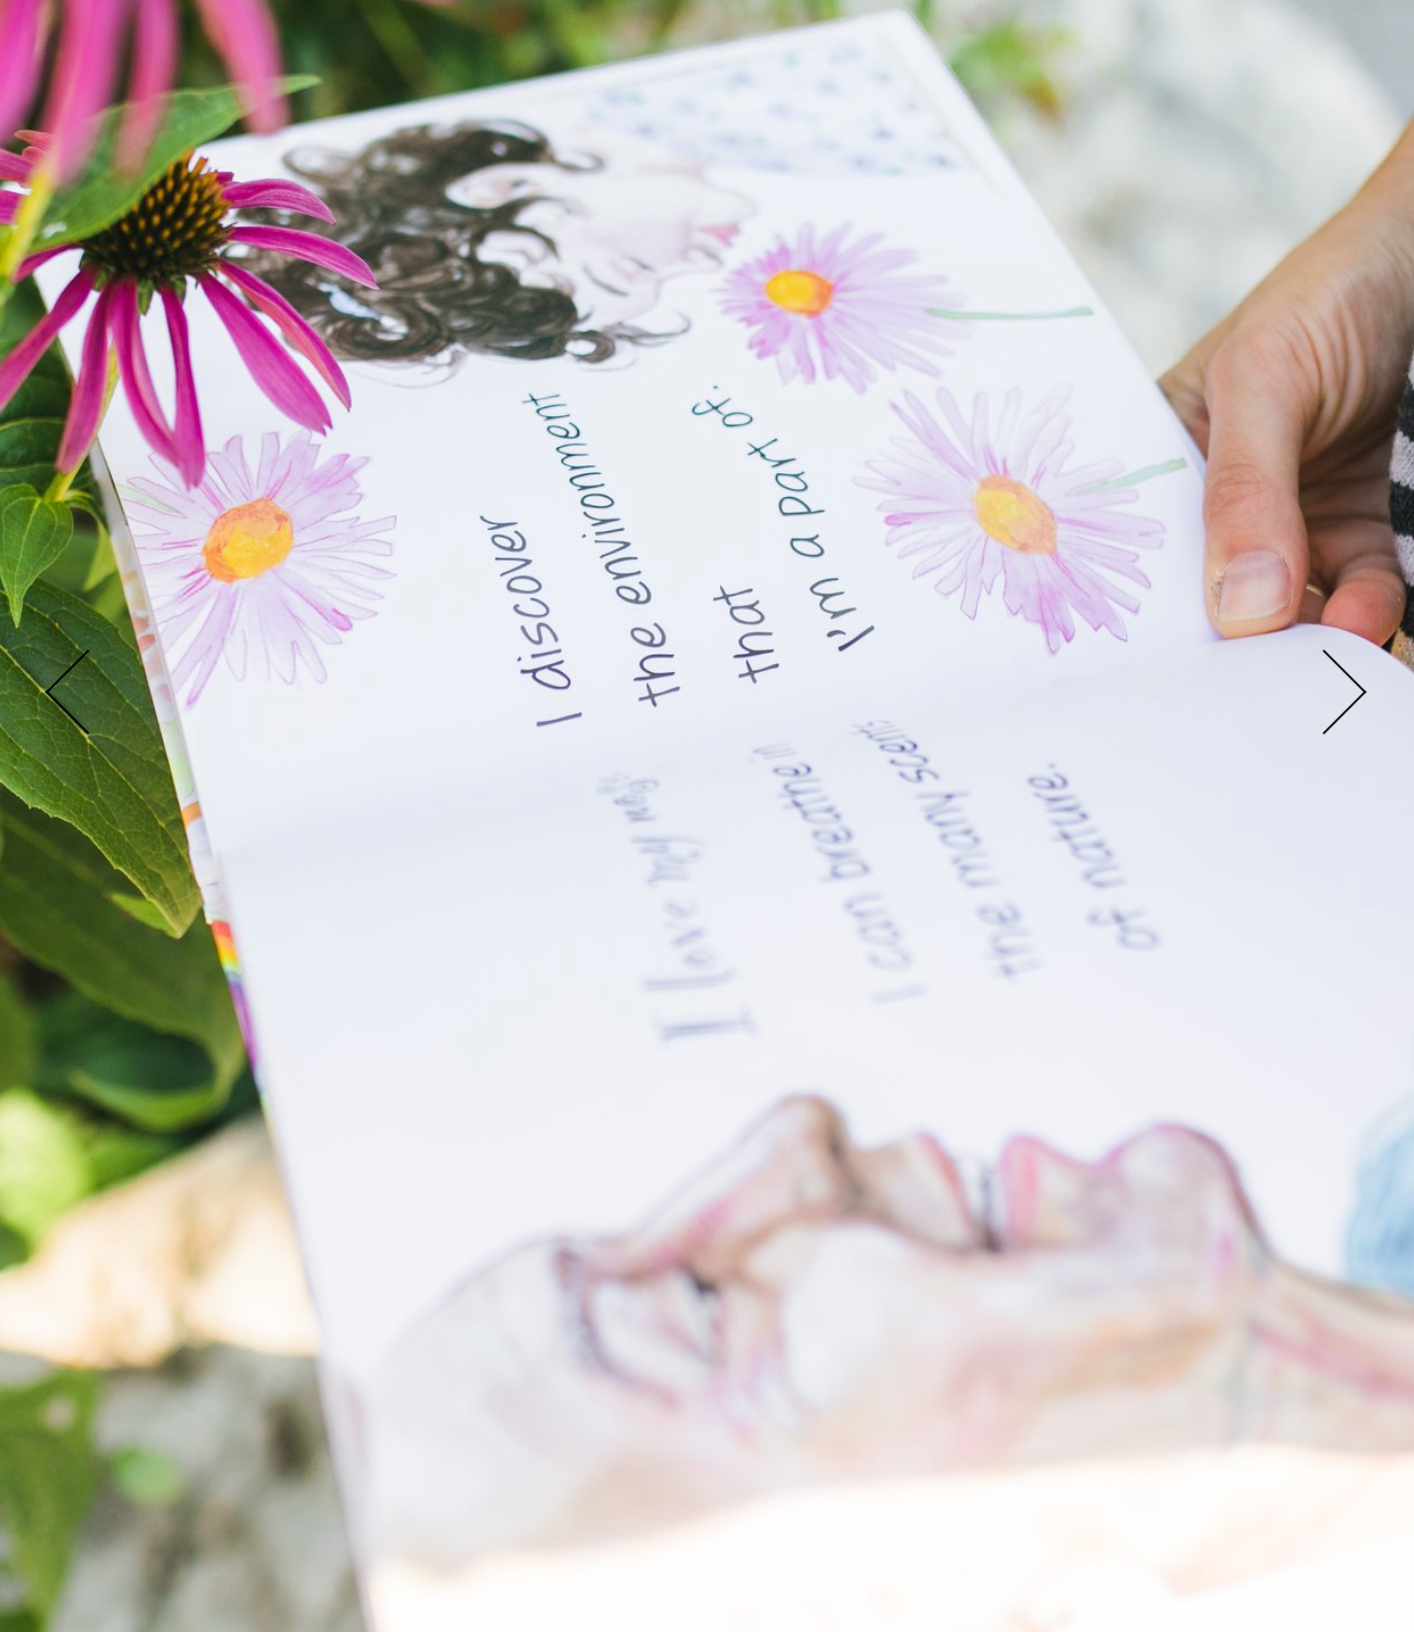 I love my nose.
I can breathe in
the many scents
of nature.
I discover
the environment
that
I'm a part of.